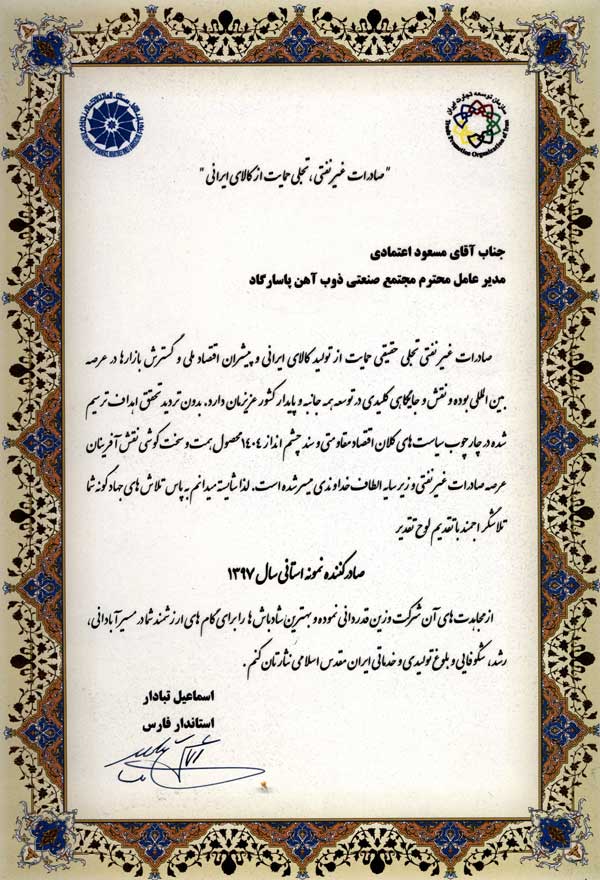 سازمان توسعه تجارت ایران
Trade Promotion Organization of Iran
"صادرات غیرنفتی، تجلی حمایت از کالای ایرانی"
جناب آقای مسعود اعتمادی
مدیر عامل محترم مجتمع صنعتی ذوب آهن پاسارگاد
صادرات غیرنفتی تجلی حقیقی حمایت از تولید کالای ایرانی و پیشران اقتصاد ملی و گسترش بازارها در عرصه
بین المللی بوده و نقش و جایگاهی کلیدی در توسعه همه جانبه و پایدار کشور عزیزمان دارد. بدون تردید تحقق اهداف ترسیم
شده در چارچوب سیاست های کلان اقتصاد مقاومتی و سند چشم انداز ۱۴۰۴ محصول همت و سخت کوشی نقش آفرینان
عرصه صادرات غیرنفتی و زیر سایه الطاف خداوندی میسر شده است. لذا شایسته میدانم به پاس تلاش های جهادگونه شما
تلاشگر ارجمند با تقدیم لوح تقدیر
صادرکننده نمونه استانی سال ۱۳۹۷
از مجاهدت های آن شرکت وزین قدردانی نموده و بهترین شادباش ها را برای گام های ارزشمند شما در مسیر آبادانی،
رشد، شکوفایی و بلوغ تولیدی و خدماتی ایران مقدس اسلامی نثارتان کنم.
اسماعیل تبادار
استاندار فارس